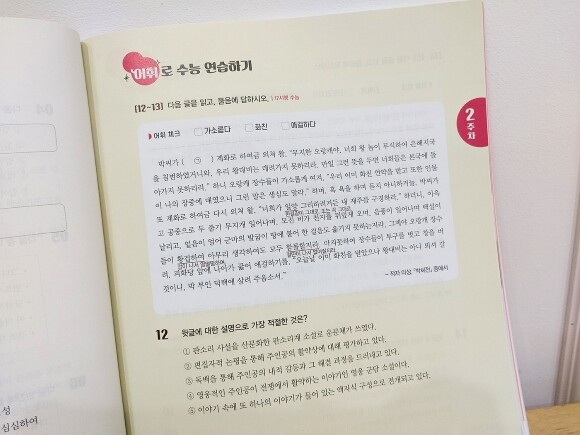 어휘로 수능 연습하기
[12~13] 다음 글을 읽고, 물음에 답하시오.
어휘 체크 가소롭다 화친 애걸하다
박씨가 ( ㉠ ) 계화로 하여금 외쳐 왈, "무지한 오랑캐야, 너희 왕 놈이 무식하여 은혜지국
을 침범하였거니와, 우리 왕대비는 데려가지 못하리라. 만일 그런 뜻을 두면 너희들은 본국에 돌
아가지 못하리라." 하니 오랑캐 장수들이 가소롭게 여겨, "우리 이미 화친 언약을 받고 또한 인물
이 나의 장중에 매였으니 그런 말은 생심도 말라." 하며, 혹 욕을 하며 듣지 아니하거늘, 박씨가
또 계화로 하여금 다시 외쳐 왈, "너희가 일양 그리하려거든 내 재주를 구경하라." 하더니, 이윽
고 공중으로 두 줄기 무지개 일어나며, 모진 비가 천지를 뒤덮게 오며, 음풍이 일어나며 백설이
날리고, 얼음이 얼어 군마의 발굽이 땅에 붙어 한 걸음도 옮기지 못하는지라. 그제야 오랑캐 장수
들이 황겁하여 아무리 생각하여도 모두 함몰할지라. 마지못하여 장수들이 투구를 벗고 창을 버
려, 피화당 앞에 나아가 꿇어 애걸하기를, "오늘날 이미 화친을 받았으나 왕대비는 아니 뫼셔 갈
것이니, 박 부인 덕택에 살려 주옵소서."
- 작자 미상, 「박씨전」 중에서
12 윗글에 대한 설명으로 가장 적절한 것은?
① 판소리 사설을 산문화한 판소리계 소설로 운문체가 쓰였다.
② 편집자적 논평을 통해 주인공의 활약상에 대해 평가하고 있다.
③ 독백을 통해 주인공의 내적 갈등과 그 해결 과정을 드러내고 있다.
④ 영웅적인 주인공이 전쟁에서 활약하는 이야기인 영웅 군담 소설이다.
⑤ 이야기 속에 또 하나의 이야기가 들어 있는 액자식 구성으로 전개되고 있다.
2
주차
성
심심하여